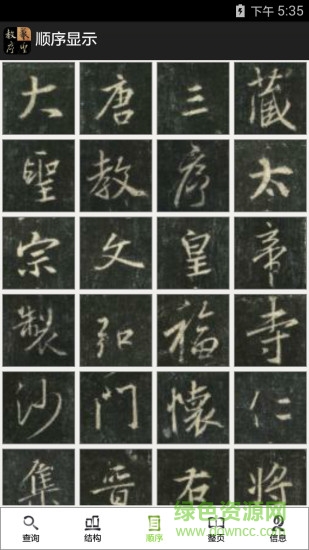 下午 5:35
教序 聖
顺序显示
大唐三藏
聖教序太
宗文皇帝
製弘福寺
沙門懷仁
集晉右将
绿色资源网
www.downcc.com
查询 结构 顺序 整页 信息